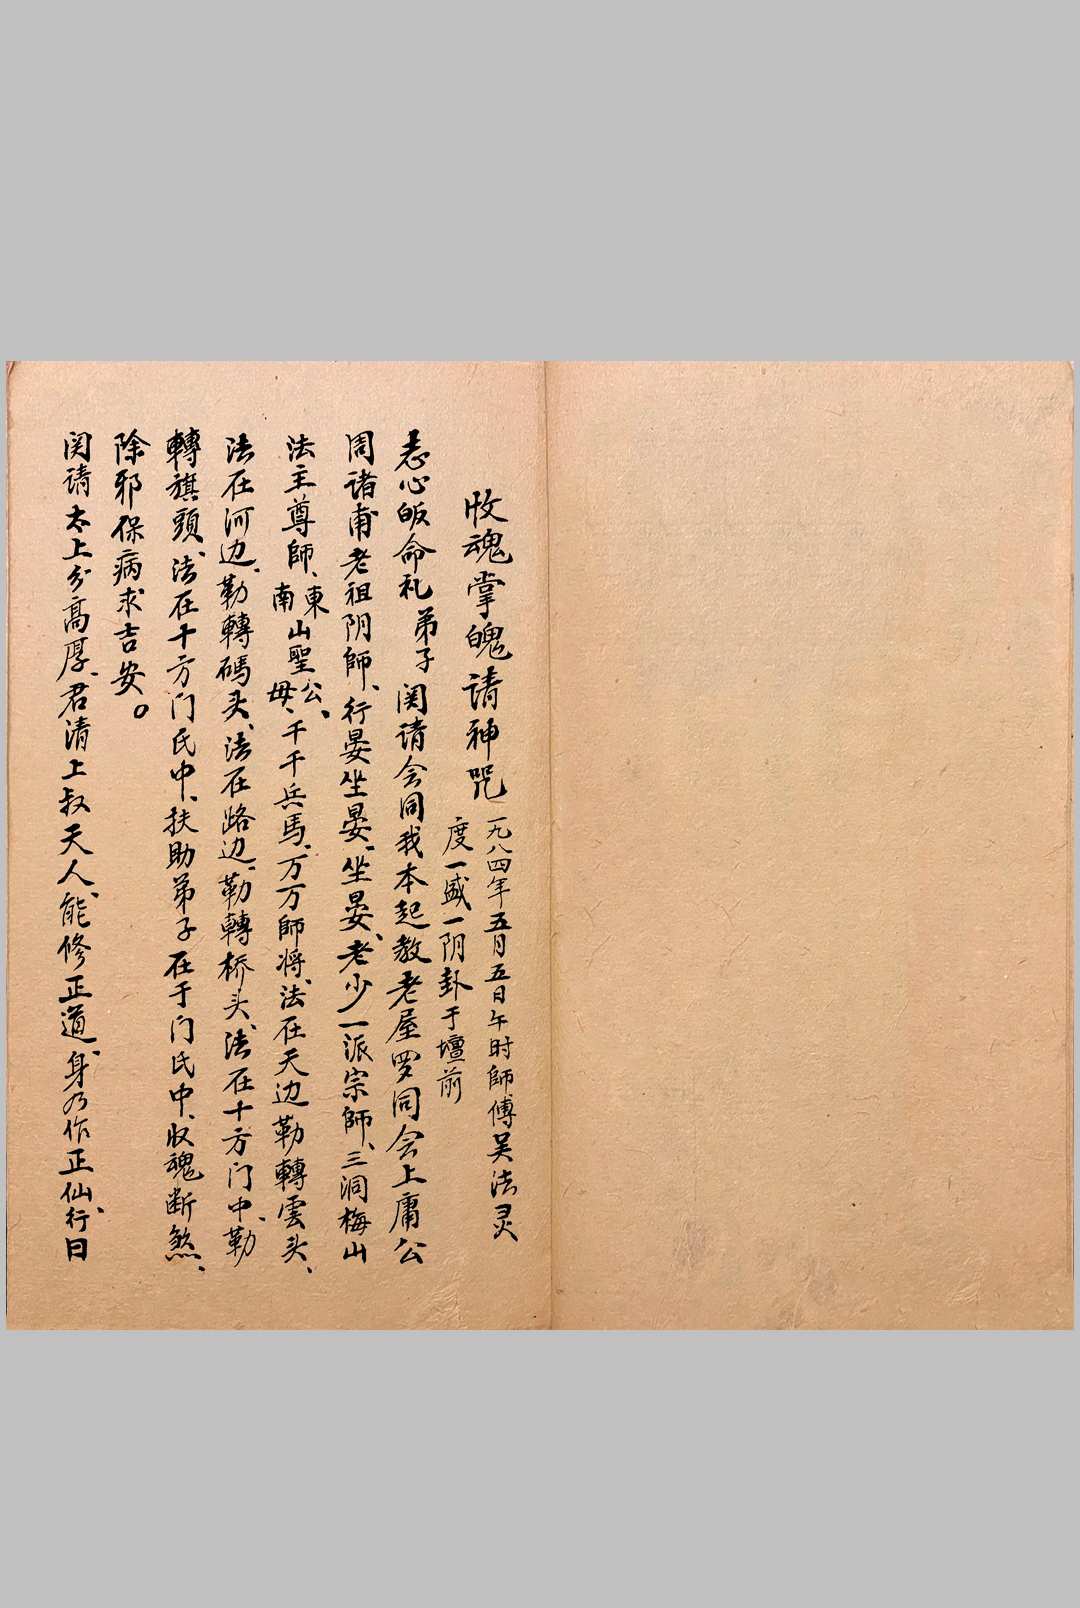 收魂掌魄請神咒
一九八四年五月五日午时師傅吴法灵
度一盛一阴卦于壇前
志心皈命礼弟子関請会同我本起教老屋罗同会上庸公
周诸甫老祖阴師、行晏坐晏、坐晏、老少一派宗師、三洞梅山
法主尊師、東南山聖公、母、千千兵馬、万万師将、法在天边勒轉雲头、
法在河边、勒轉碼头、法在路边、勒轉桥头、法在十方门中、勒
轉旗頭、法在十方门氏中、扶助弟子在于门氏中、收魂断煞、
除邪保病求吉安。
関請太上分高厚、君清上叔天人、能修正道、身乃作正仙、行日